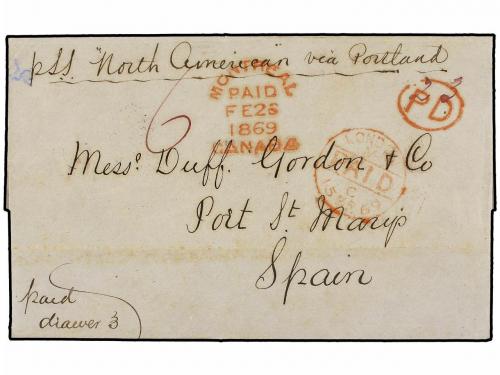 pSS "North American" via Portland
MONTREAL
PAID
FE 26
1869
CANADA
PD
LONDON
PAID
C
15 MR 69
Messrs. Duff Gordon & Co
Port St. Marys
Spain
paid
drawer 3